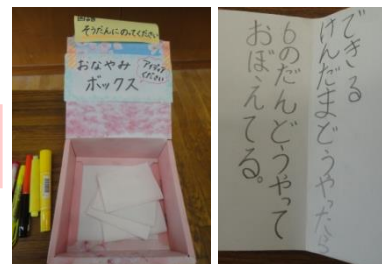 そうだんにのってください
おなやみ
ボックス
アイディア
ください
できる
けんだまどうやったら
6のだんどうやって
おぼえてる。